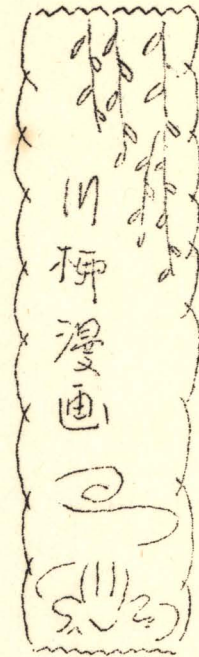 川柳漫画